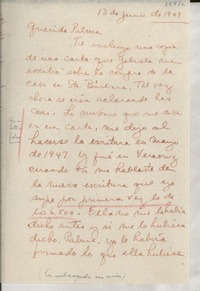 13 de junio de 1949
Querida Palma:
Te incluyo una copia
de una carta que Gabriela me
escribió sobre la compra de la
casa en Sta. Bárbara. Tal vez
ahora se irán aclarando las
cosas. Lo mismo que me dice
en esa carta, me dijo al
hacerse la escritura en mayo
de 1947. Y fué en Veracruz
cuando tú me hablaste de
la nueva escritura que yo
supe por primera vez lo de
los 6.700. Ella no me lo había
dicho antes y si me lo hubiera
dicho, Palma, yo le habría
firmado lo que ella hubiese